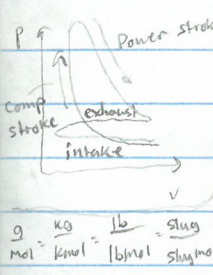 P
Power strok
comp
stroke
exhaust
intake
V
g/mol = kg/kmol = lb/lbmol = slug/slugmo